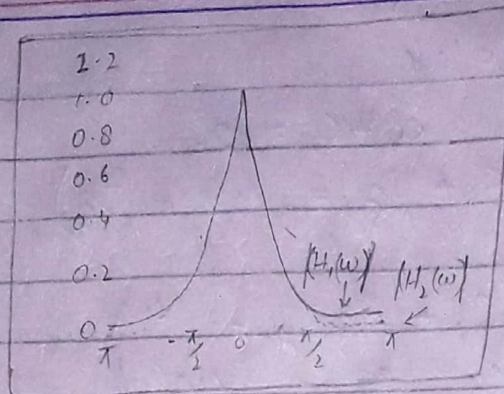 1.2
1.0
0.8
0.6
0.4
0.2
|H₁(ω)|
|H₂(ω)|
0
π
-π/2
0
π/2
π